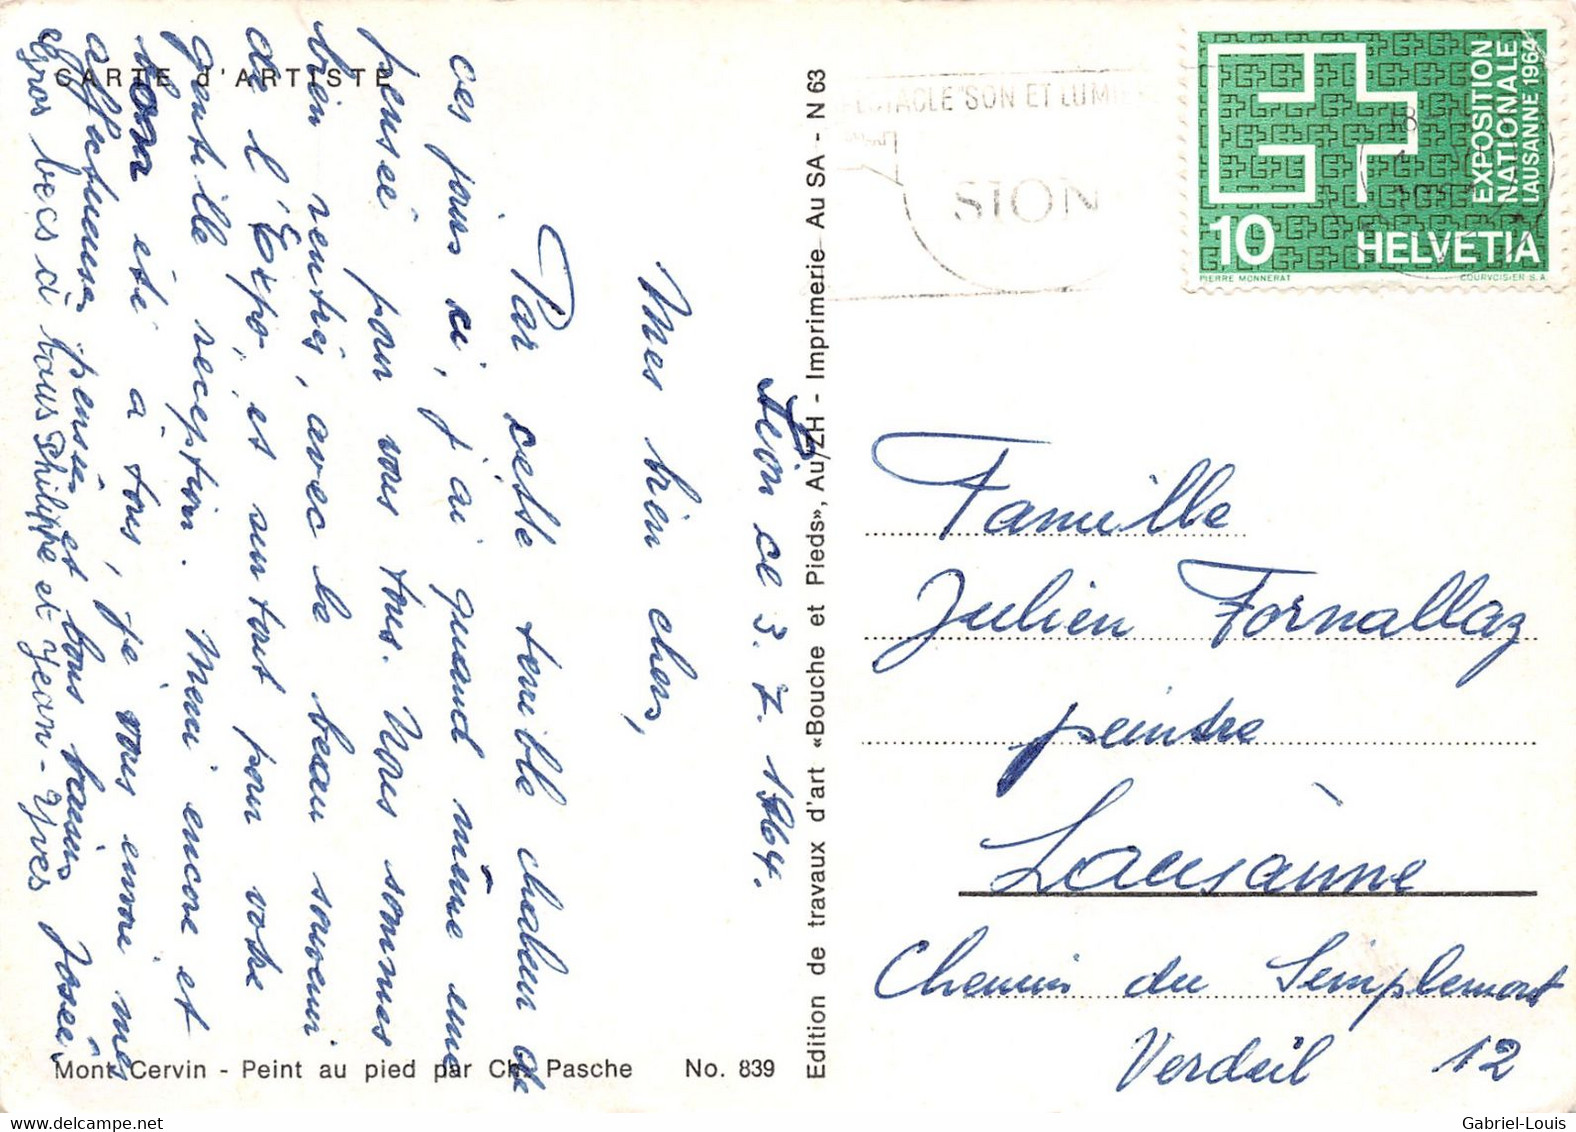 CARTE d'ARTISTE
Sion ce 3. 7. 1964.
Mes bien chers,
Par cette terrible chaleur de
ces jours ci, j'ai quand même une
pensée pour vous tous. Nous sommes
bien rentrés, avec le beau souvenir
de l'Expo, et surtout pour votre
gentille réception. Merci encore et
bon été à tous, je vous envoie mes
affectueuses pensées et bons baisers Josée
Gros becs à tous Philippe et Jean-Yves
Mont Cervin - Peint au pied par Ch. Pasche No. 839
Edition de travaux d'art «Bouche et Pieds», Au/ZH - Imprimerie Au SA - N 63
SPECTACLE "SON ET LUMIÈRE
SION
EXPOSITION
NATIONALE
LAUSANNE 1964
10 HELVETIA
PIERRE MONNERAT COURVOISIER S.A.
Famille
Julien Fornallaz
peintre
Lausanne
Chemin du Semplemont
Verdeil 12
Gabriel-Louis